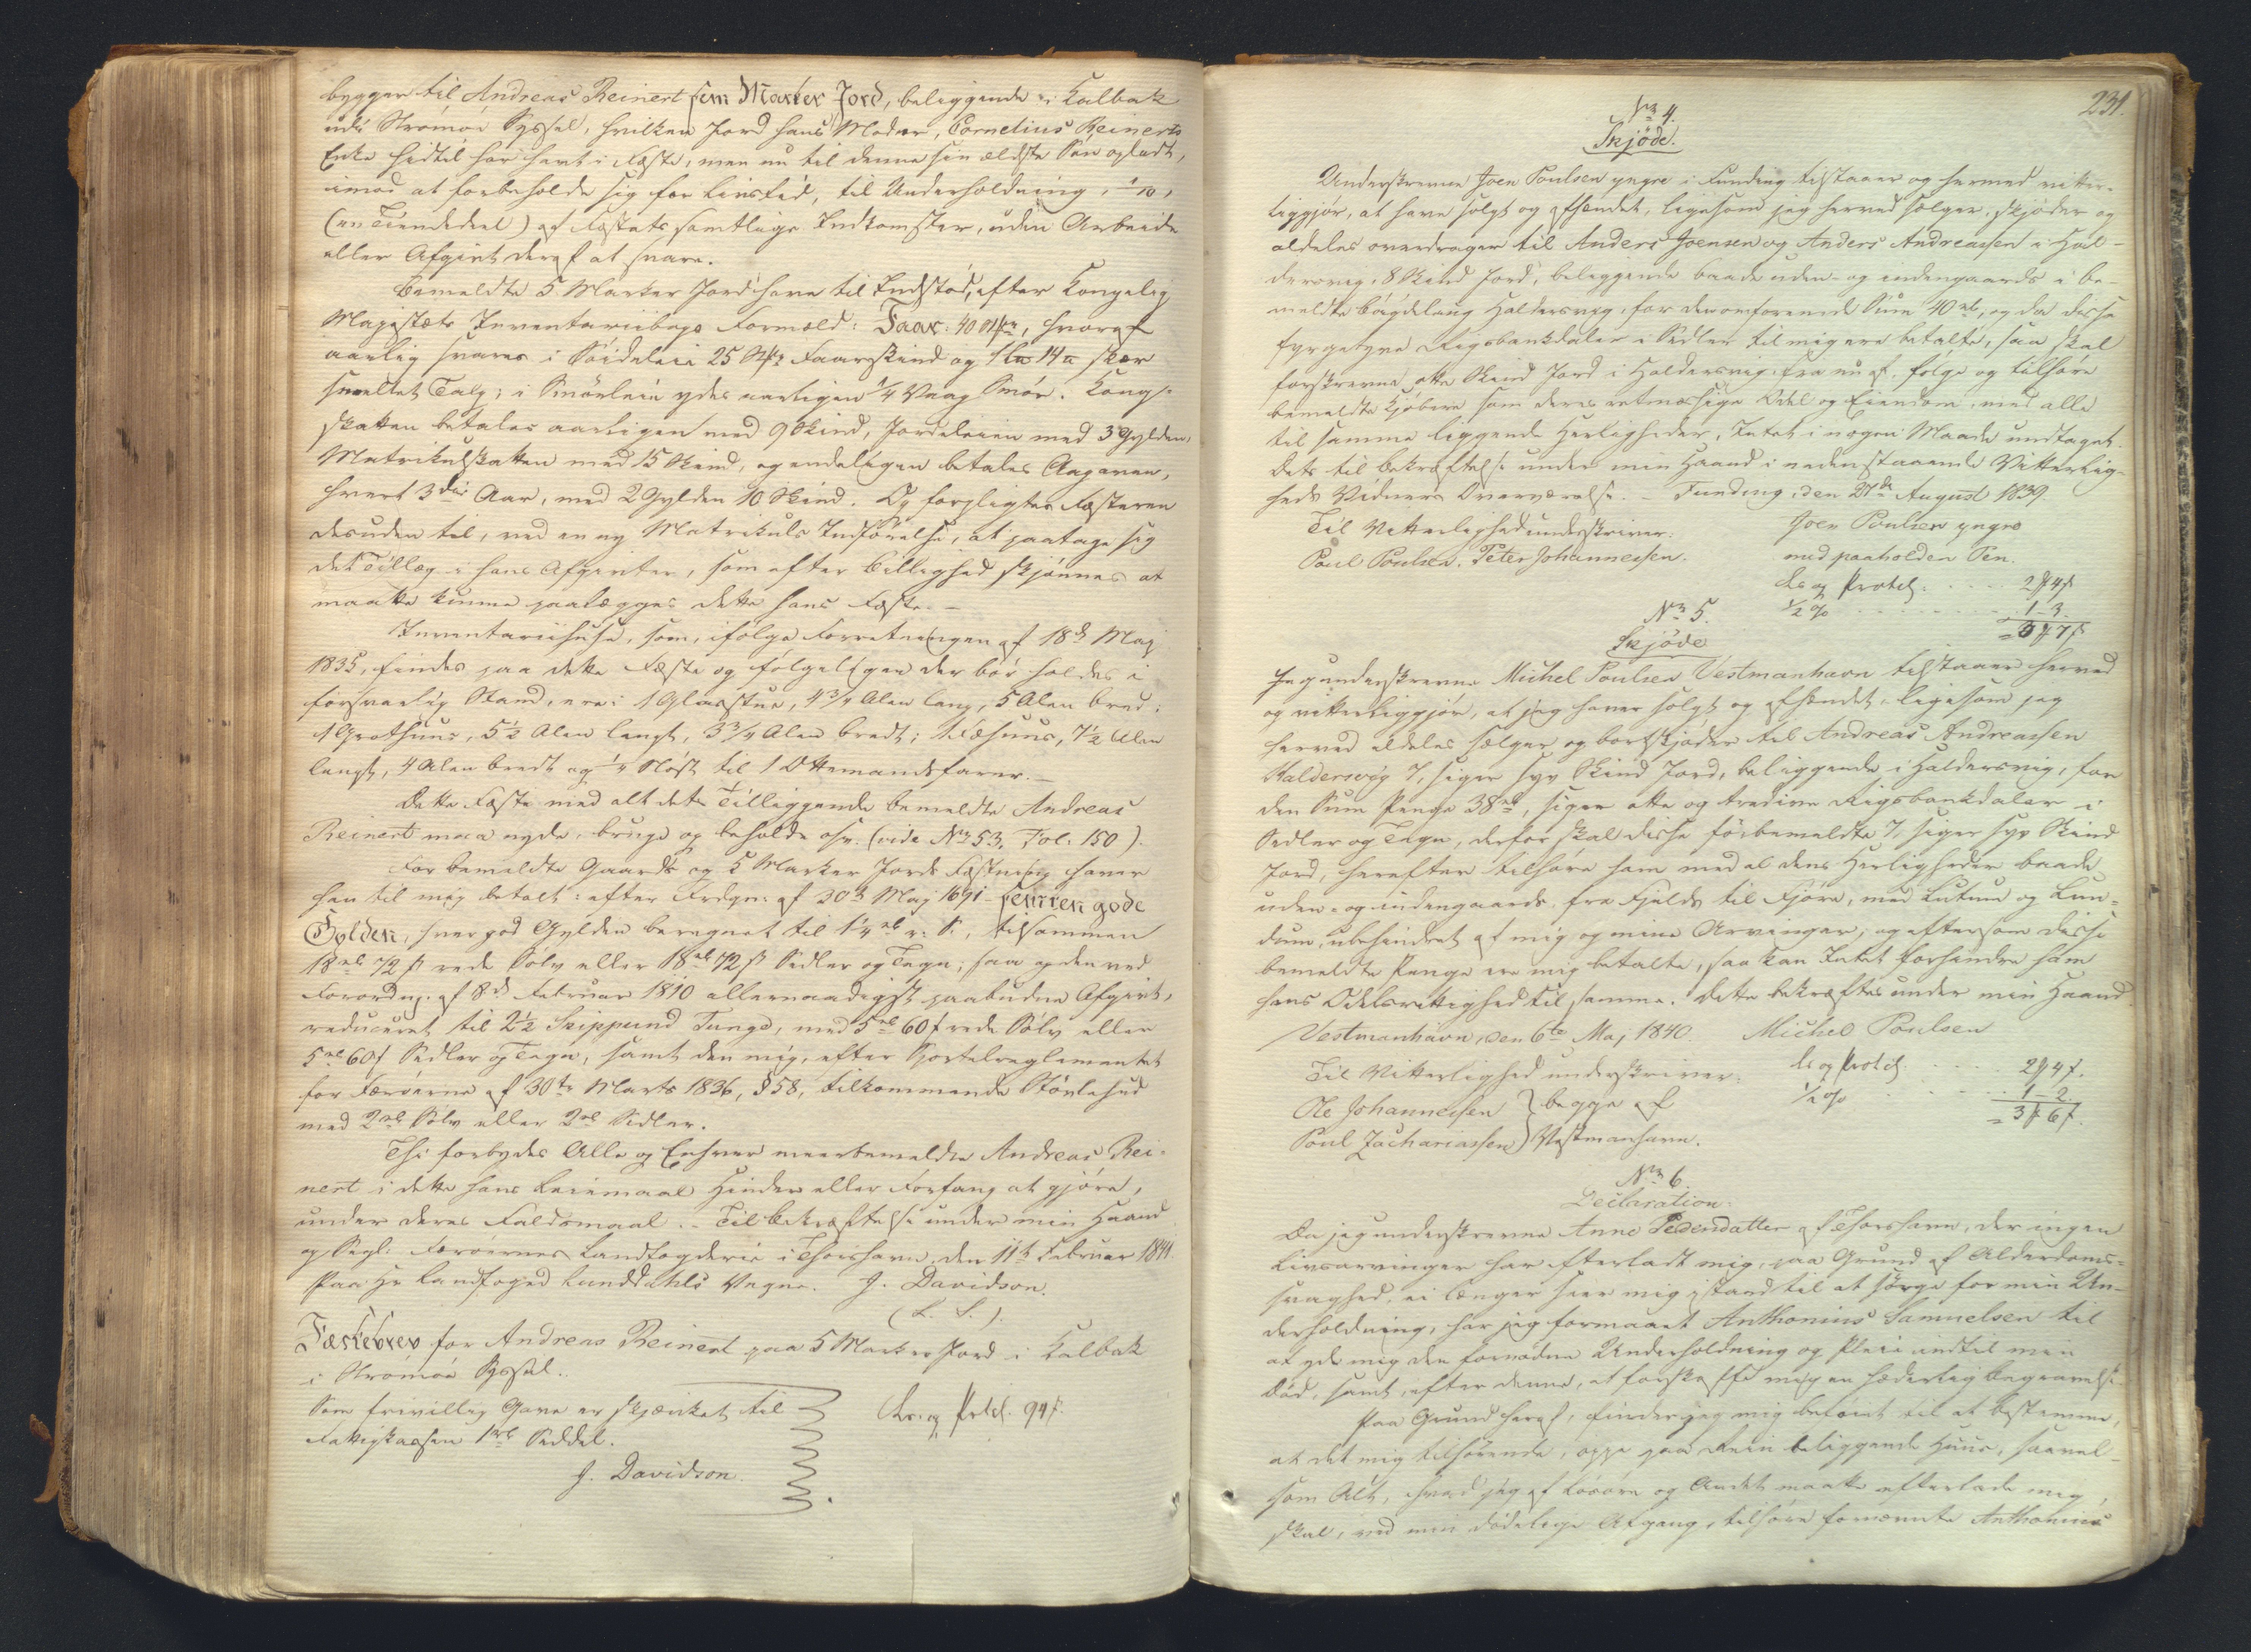 bygger til Andreas Reinert fem Marker Jord, beliggende i Kalbak
udi Strömöe Syssel, hvilken Jord hans Moder, Cornelius Reinerts
Enke hidtil har havt i Fæste, men nu til denne sin ældste Sön opladt,
imod at forbeholde sig for Livstid, til Underholdning, 1/10,
(en Tiendedeel) af Fæstets samtlige Indkomster, uden Arbeide
eller Afgivt deraf at svare.
Bemeldte 5 Marker Jord have til Indstöd, efter Kongelig
Majestæts Inventariibogs Formeld: Faar: 40 Stkr, hvoraf
aarlig svares i Söideleie 25 Stkr Faarskind og 14 skær
smeltet Talg; i Smörleie ydes aarligen 1/4 Vaag Smör. Konge-
skatten betales aarligen med 9 Skind, Jordeleien med 3 Gylden,
Matrikulskatten med 15 Skind, og endeligen betales Angaven,
hvert 3die Aar, med 2 Gylden 10 Skind. Og forpligtes Fæsteren
desuden til, ved en ny Matrikuls Indförelse, at paatage sig
det Tillæg i hans Afgivter, som efter Billighed skjönnes at
maatte kunne paalægges dette hans Fæste. –
Inventariihuse, som, ifölge Forretningen af 18de Maj
1835, findes paa dette Fæste og fölgeligen der bör holdes i
forsvarlig Stand, ere: 1 Glasstue, 4 3/4 Alen lang, 5 Alen bred;
1 Grothuus, 5 1/2 Alen langt, 3 3/4 Alen bredt; 1 Fæhuus, 7 1/2 Alen
langt, 4 Alen bredt og 1/4 Nöst til 1 Ottemandsfarer. –
Dette Fæste med alt dets Tilliggende bemeldte Andreas
Reinert maa nyde, bruge og beholde osv. (vide No 53, Fol. 150).
For bemeldte Gaards og 5 Marker Jords Fæstning haver
han til mig betalt: efter Frdgn. af 30te Maj 1691 femten gode
Gylden, hver god Gylden beregnet til 1 1/4 rb r. S., tilsammen
18 rb 72 s rede Sölv eller 18 rb 72 s Sedler og Tegn; saa og den ved
Forordng. af 8de Februar 1810 allernaadigst paabudne Afgivt,
reduceret til 2 1/2 Skippund Tunge, med 5 rb 60 s rede Sölv eller
5 rb 60 s Sedler og Tegn, samt den mig, efter Sportelreglementet
for Færöerne af 30te Marts 1836, § 58, tilkommende Stövlehud
med 2 rb Sölv eller 2 rb Sedler.
Thi forbydes Alle og Enhver meerbemeldte Andreas Rei-
nert i dette hans Leiemaal Hinder eller Forfang at gjöre,
under deres Faldsmaal. – Til Bekræftelse under min Haand
og Segl. Færöernes Landfogderie i Thorshavn, den 11te Februar 1841.
Paa Hr Landfoged Lunddahls Vegne. J. Davidson.
(L. S.)
Fæstebrev for Andreas Reinert paa 5 Marker Jord i Kalbak
i Strömöe Syssel.
Som frivillig Gave er skjænket til
Fattigkassen 1 rb Seddel.
J. Davidson.
Ls. og Protcl. 94 s.
231.
No 4.
Skjöde.
Underskrevne Joen Poulsen yngre i Funding tilstaaer og hermed vitter-
liggjör, at have solgt og afhændet, ligesom jeg herved sælger, skjöder og
aldeles overdrager til Anders Joensen og Anders Andreassen i Hal-
dersvig, 8 Skind Jord, beliggende baade uden- og indengaards i be-
meldte bögdelaug Haldersvig, for den omforenede Sum 40 rb, og da disse
fyrgetyve Rigsbankdaler i Sedler til mig ere betalte, saa skal
forskrevne otte Skind Jord i Haldersvig, fra nu af, fölge og tilhöre
bemeldte Kjöbere som deres retmæssige Odel og Eiendom, med alle
til samme liggende Herligheder, Intet i nogen Maade undtaget.
Dets til Bekræftelse under min Haand i nedenstaaende Vitterlig-
heds Vidners Overværelse. – Funding, den 27de August 1839.
Til Vitterlighed underskriver:
Joen Poulsen yngre
Poul Poulsen. Peter Johannessen.
med paaholden Pen.
Ls og Protcl. . . . . 2 4 s
No 5.
1/2 % . . . . . 1 - 3.
= 3 7 s
Skjöde
Jeg underskrevne Michel Poulsen Vestmanhavn tilstaaer herved
og vitterliggjör, at jeg haver solgt og afhændet, ligesom jeg
herved aldeles sælger og bortskjöder til Andreas Andreassen
Haldersvig 7, siger syv Skind Jord, beliggende i Haldersvig, for
den Sum Penge 38 rb, siger otte og tredive Rigsbankdaler i
Sedler og Tegn, derfor skal disse förbemeldte 7, siger syv Skind
Jord, herefter tilhöre ham med al dens Herligheder baade
uden- og indengaards, fra Fjelds til Fjöre, med Lutum og Lun-
dum, ubehindret af mig og mine Arvinger; og eftersom disse
bemeldte Penge ere mig betalte, saa kan Intet forhindre ham
hans Odelsrettighed til samme. Dette bekræftes under min Haand
Vestmanhavn, den 6te Maj 1840. Michel Poulsen
Til Vitterlighed underskriver:
Ls og Protcl. . . . . 2 4 s.
Ole Johannessen } begge af
1/2 % . . . . . 1 - 2
Poul Zachariassen } Vestmanhavn.
= 3 6 s.
No 6.
Declaration.
Da jeg underskrevne Anne Pedersdatter af Thorshavn, der ingen
Livsarvinger har efterladt mig, paa Grund af Alderdoms-
svaghed, ei længer seer mig istand til at sörge for min Un-
derholdning, har jeg formaaet Anthonius Samuelsen til
at yde mig den fornödne Underholdning og Pleie indtil min
Död, samt, efter denne, at forskaffe mig en hæderlig Begravelse
Paa Grund heraf, finder jeg mig beföiet til at bestemme,
at det mig tilhörende, oppe paa Rein beliggende Huus, saavel-
som Alt, hvad jeg af Lösöre og Andet maatte efterlade mig,
skal, ved min dödelige Afgang, tilhöre fornævnte Anthonius